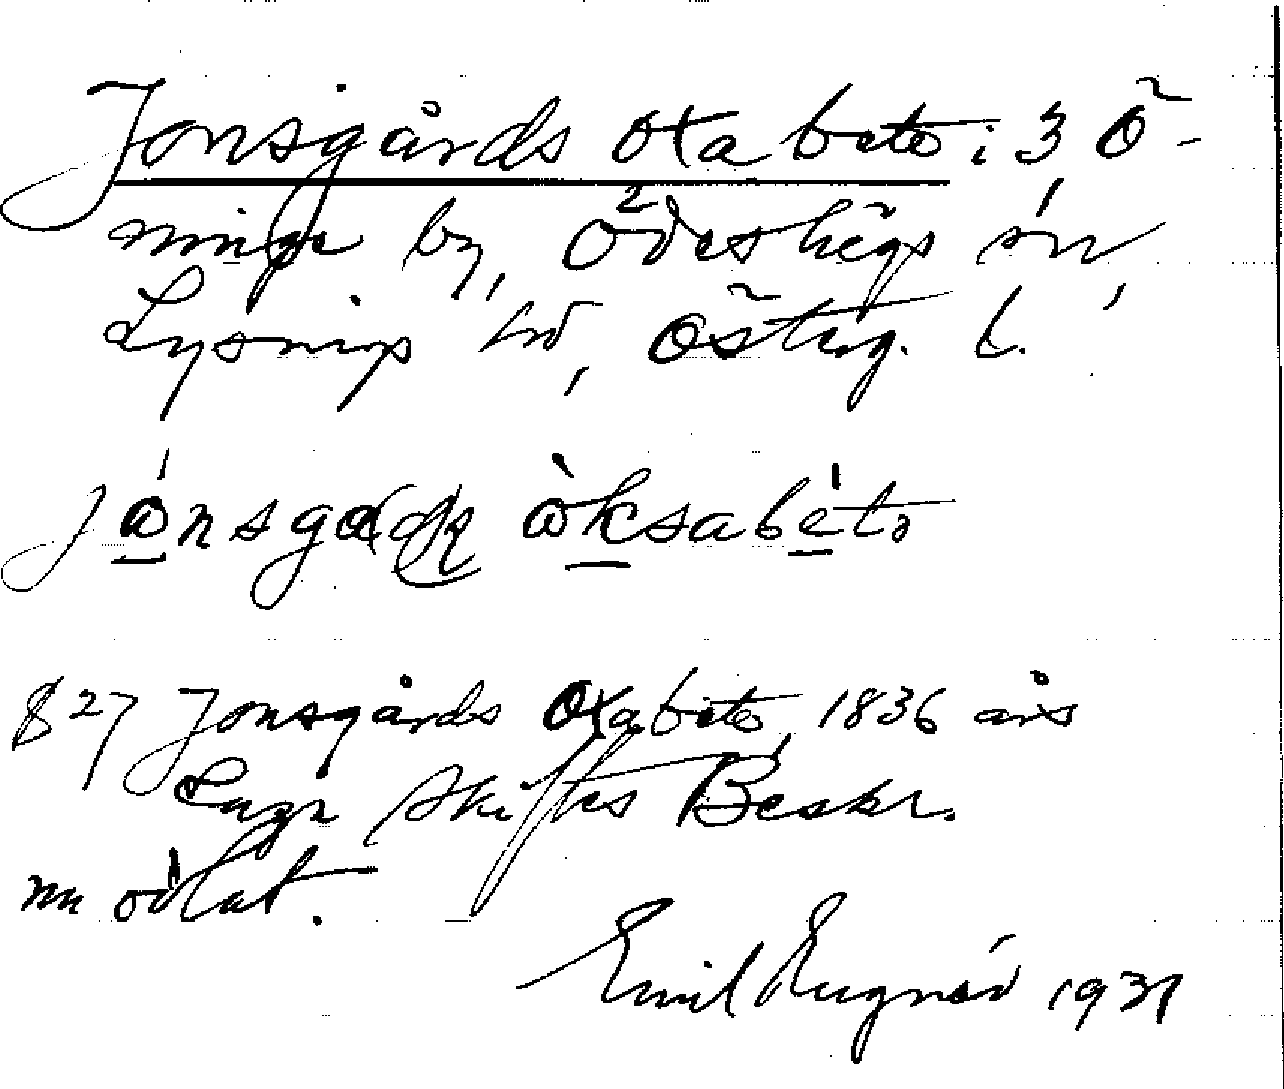 Jonsgårds oxabete: 3 Ö-
ninge by, Ödeshögs sn,
Lysings hd, Österg. l.
jo̱nsgo o̱ksabe̱tə
§27 Jonsgårds Oxabete, 1836 års
Laga Skiftes Beskr.
nu odlat.
Emil 1931